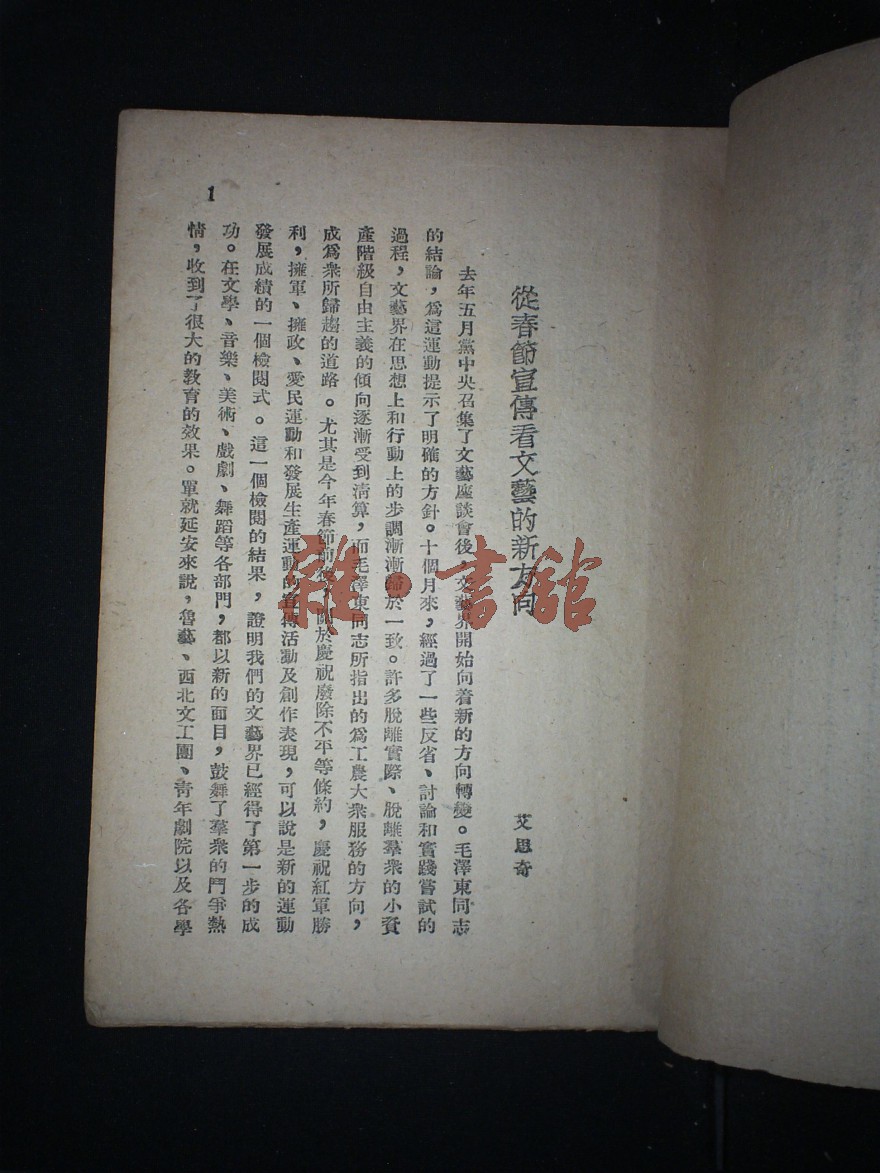 從春節宣傳看文藝的新方向
艾思奇
去年五月黨中央召集了文藝座談會後，文藝界開始向着新的方向轉變。毛澤東同志
的結論，爲這運動提示了明確的方針。十個月來，經過了一些反省、討論和實踐嘗試的
過程，文藝界在思想上和行動上的步調漸漸歸於一致。許多脫離實際、脫離羣衆的小資
產階級自由主義的傾向逐漸受到清算，而毛澤東同志所指出的爲工農大衆服務的方向，
成爲衆所歸趨的道路。尤其是今年春節前後，關於慶祝廢除不平等條約，慶祝紅軍勝
利，擁軍、擁政、愛民運動和發展生產運動的宣傳活動及創作表現，可以說是新的運動
發展成績的一個檢閱式。這一個檢閱的結果，證明我們的文藝界已經得了第一步的成
功。在文學、音樂、美術、戲劇、舞蹈等各部門，都以新的面目，鼓舞了羣衆的鬥爭熱
情，收到了很大的教育的效果。單就延安來說，魯藝、西北文工團、青年劇院以及各學
1
雜·書館